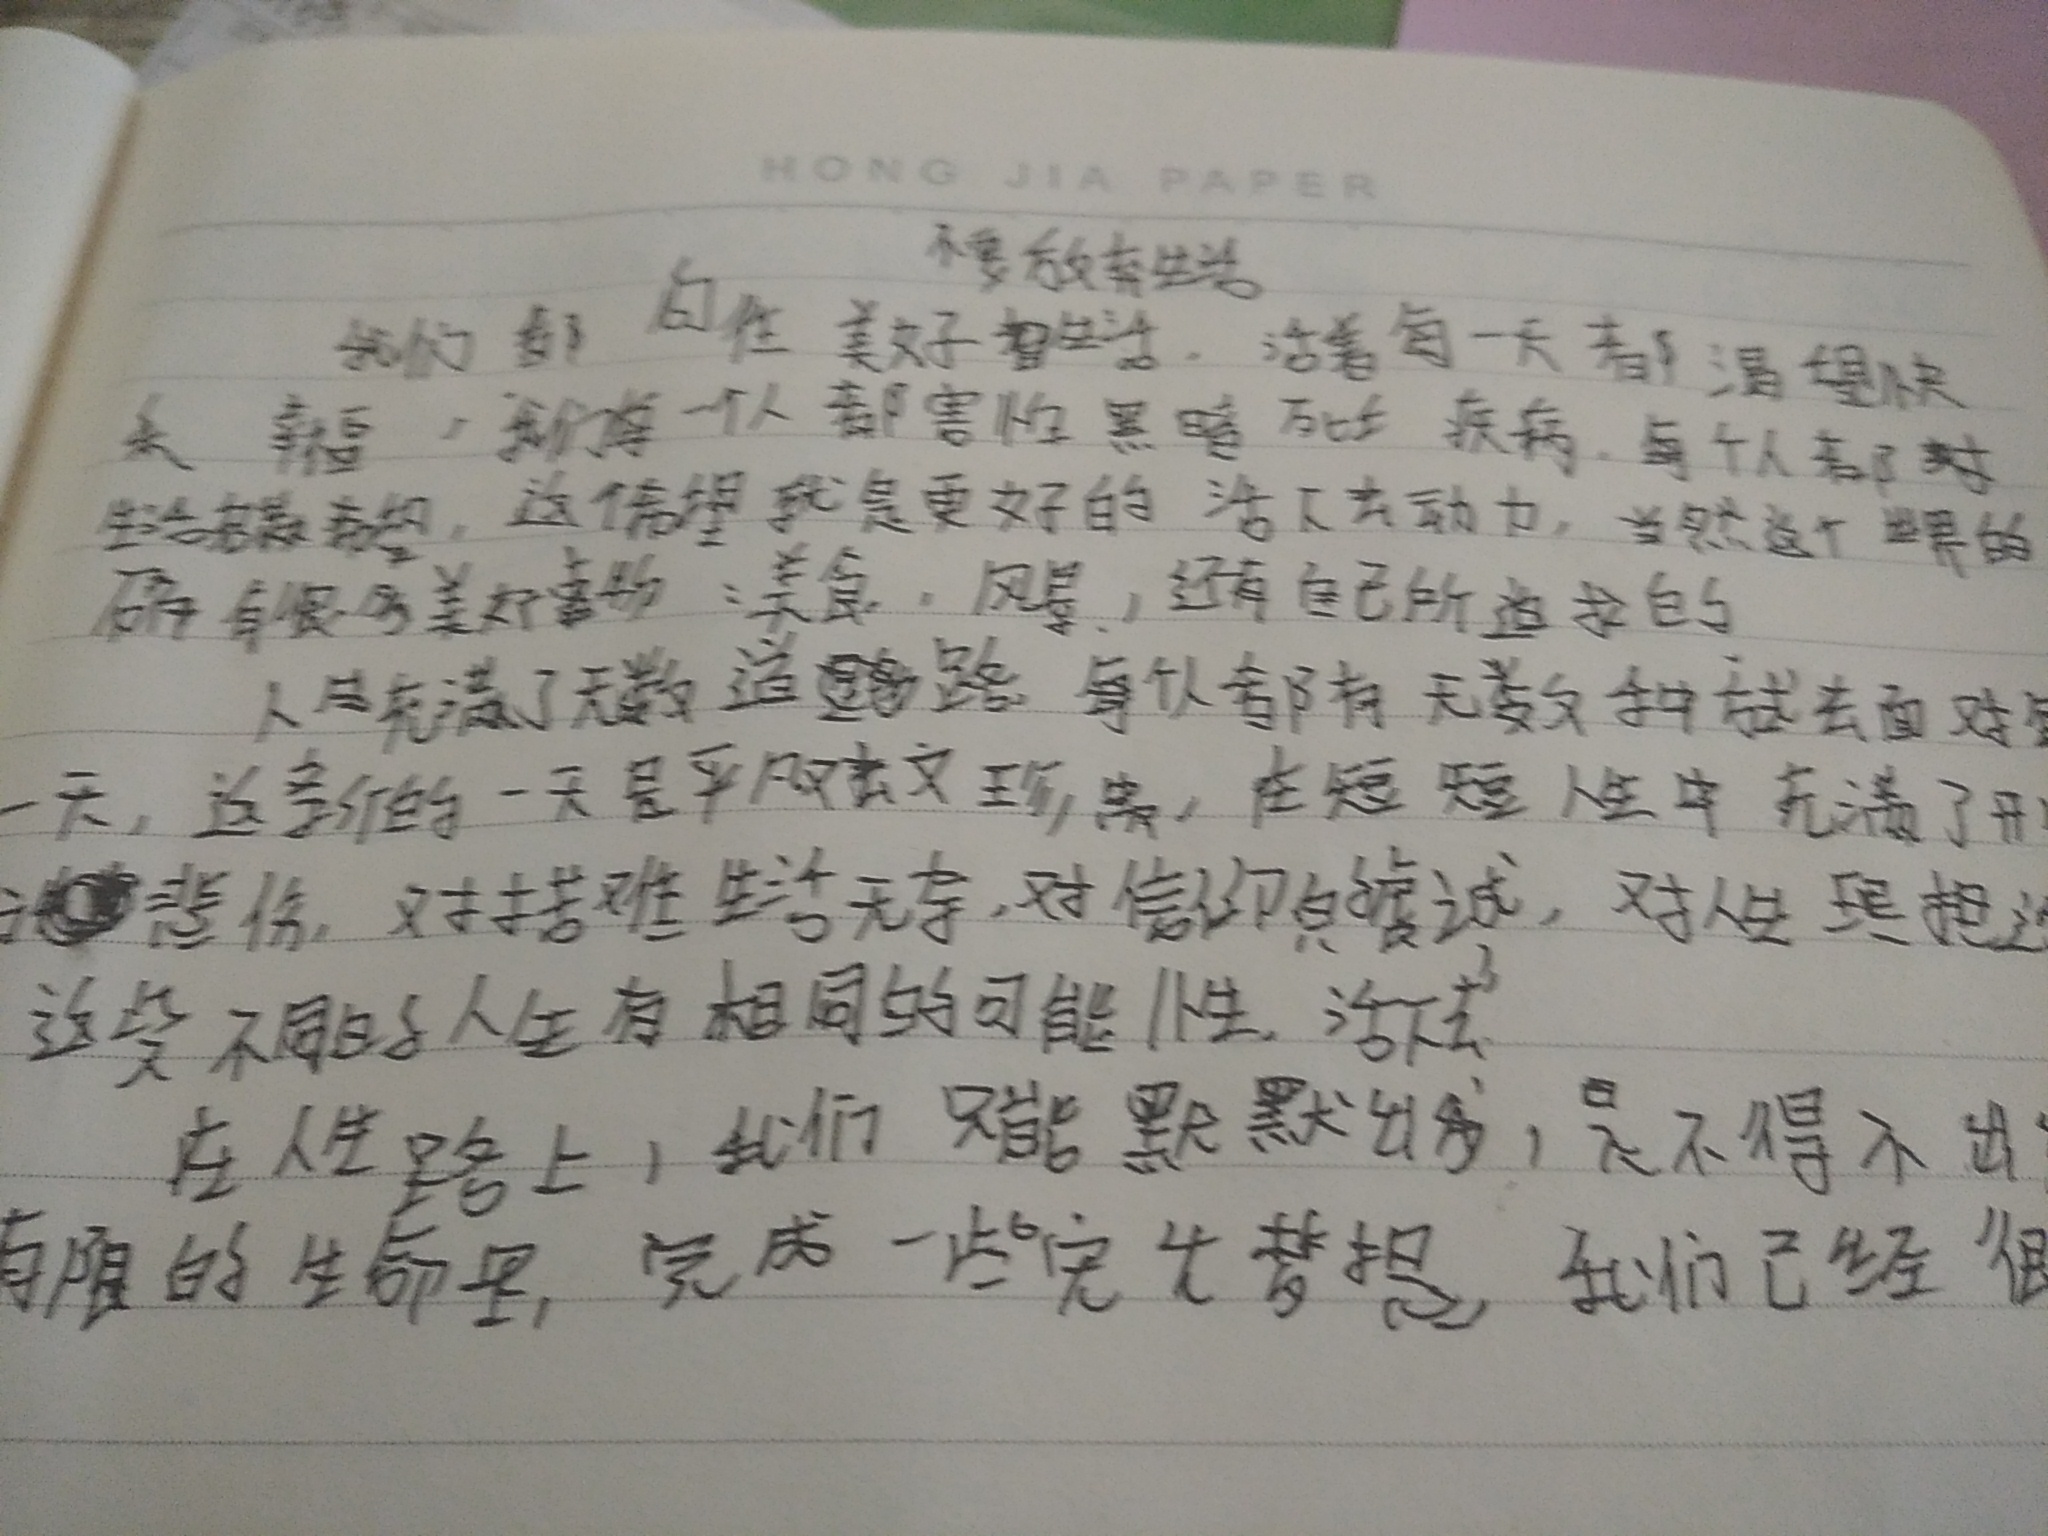 HONG JIA PAPER
不要放弃生活
我们都向往美好生活.活着每一天都渴望快
乐 幸福,我们每一个人都害怕黑暗 死亡 疾病.每个人都对
生活抱有希望,这个希望就是更好的活下去动力,当然这个世界的
有很多美好事物:美食,风景,还有自己所追求的
人生充满了无数道路.每个人都有无数种方式去面对
一天,这幸价的一天是平凡又珍贵,在短短人生中充满了
悲伤,对苦难生活无奈,对信仰虔诚,对人生
这些不同的人生有相同的可能性.活下去
在人生路上,我们只能默默出发,是不得不出
有限的生命里,完成一些完
梦想,我们已经很